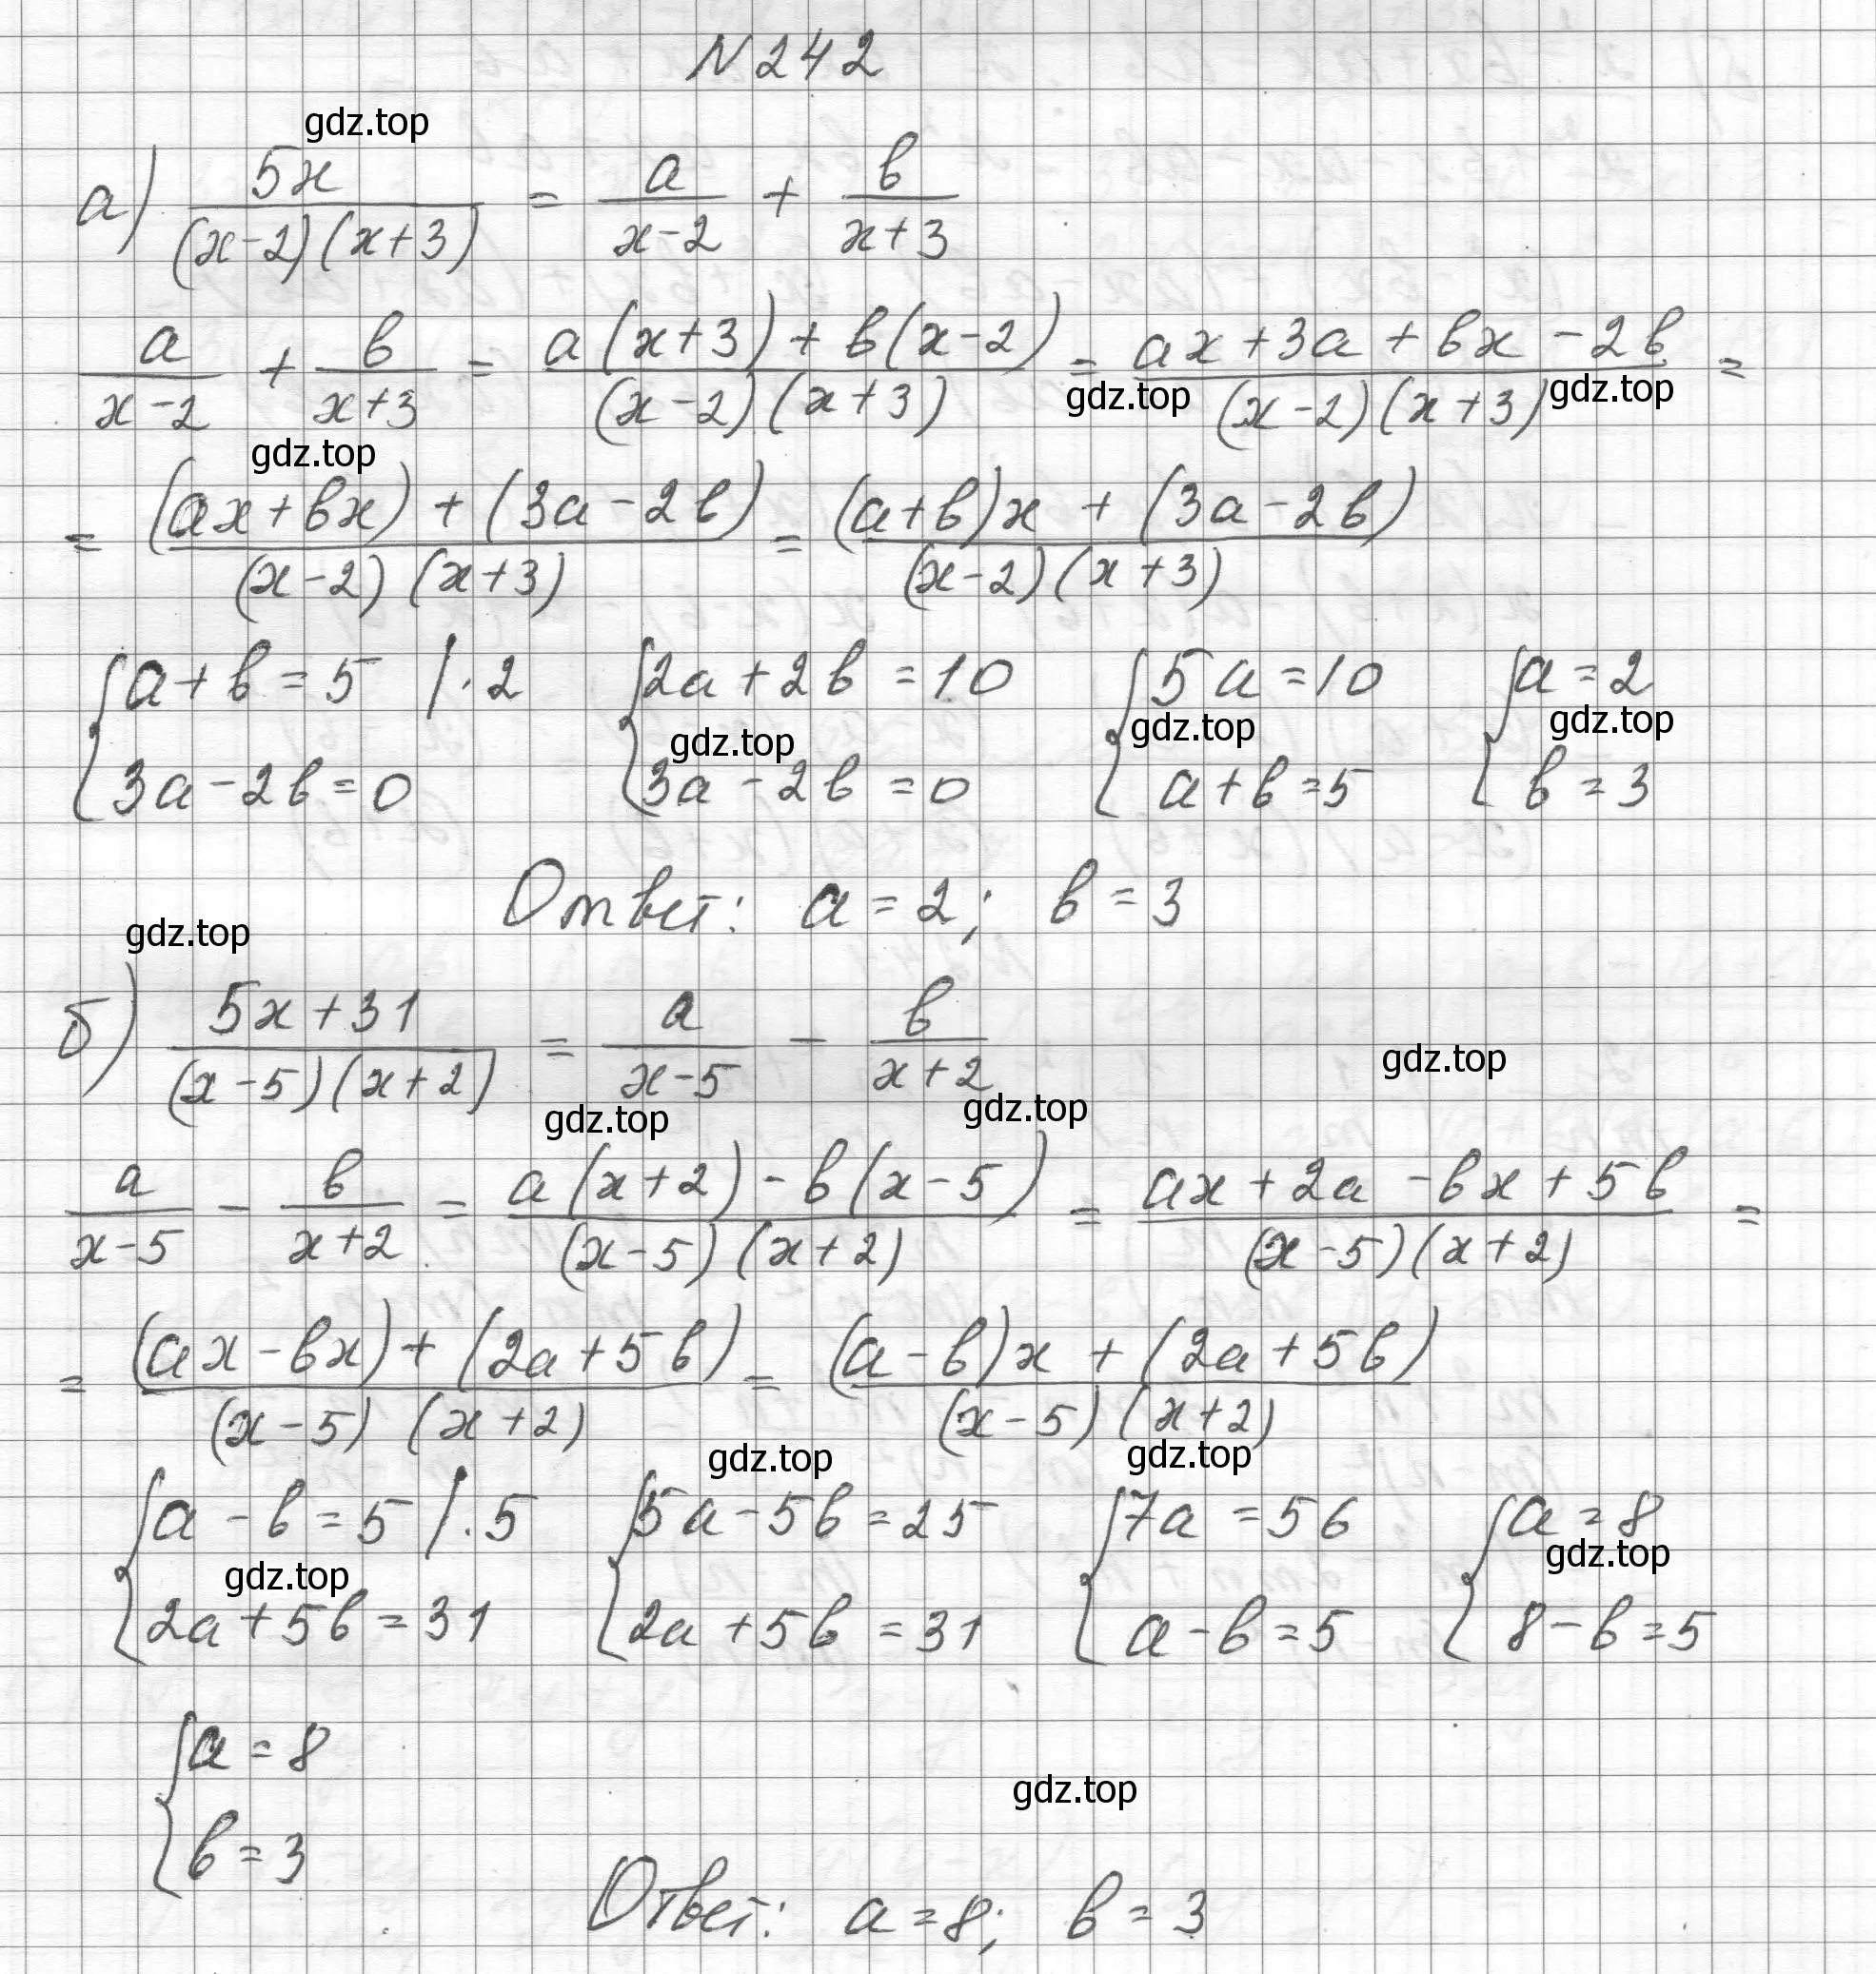 N 242
gdz.top
а) 5x/((x-2)(x+3)) = a/(x-2) + b/(x+3)
a/(x-2) + b/(x+3) = (a(x+3)+b(x-2))/((x-2)(x+3)) = (ax+3a+bx-2b)/((x-2)(x+3)) =
gdz.top gdz.top
gdz.top
= ((ax+bx)+(3a-2b))/((x-2)(x+3)) = ((a+b)x+(3a-2b))/((x-2)(x+3))
{a+b=5 |·2 {2a+2b=10 {5a=10 {a=2
gdz.top gdz.top gdz.top
3a-2b=0 3a-2b=0 a+b=5 b=3
Ответ: a=2; b=3
gdz.top
б) (5x+31)/((x-5)(x+2)) = a/(x-5) - b/(x+2)
gdz.top
gdz.top gdz.top
a/(x-5) - b/(x+2) = (a(x+2)-b(x-5))/((x-5)(x+2)) = (ax+2a-bx+5b)/((x-5)(x+2)) =
= ((ax-bx)+(2a+5b))/((x-5)(x+2)) = ((a-b)x+(2a+5b))/((x-5)(x+2))
gdz.top gdz.top
{a-b=5 |·5 {5a-5b=25 {7a=56 {a=8
gdz.top gdz.top
2a+5b=31 2a+5b=31 a-b=5 8-b=5
{a=8
gdz.top
b=3
Ответ: a=8; b=3